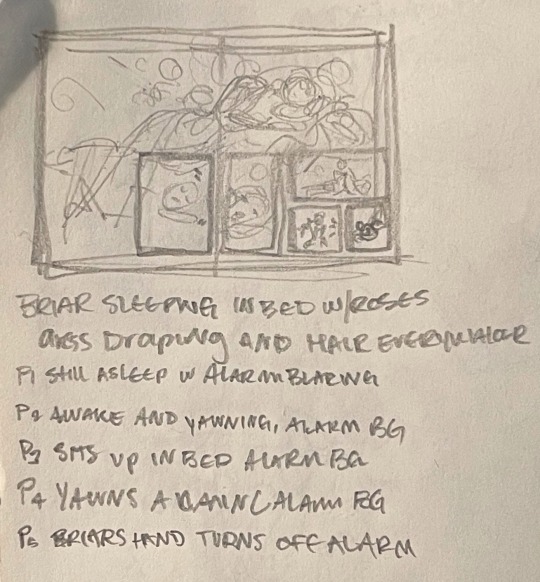 BRIAR SLEEPING IN BED W/ROSES
DRAPING AND HAIR EVERYWHERE
P1 STILL ASLEEP W ALARM BLARING
P2 AWAKE AND YAWNING, ALARM BG
P3 SITS UP IN BED ALARM BG
P4 YAWNS AGAIN ALARM BG
P5 BRIARS HAND TURNS OFF ALARM